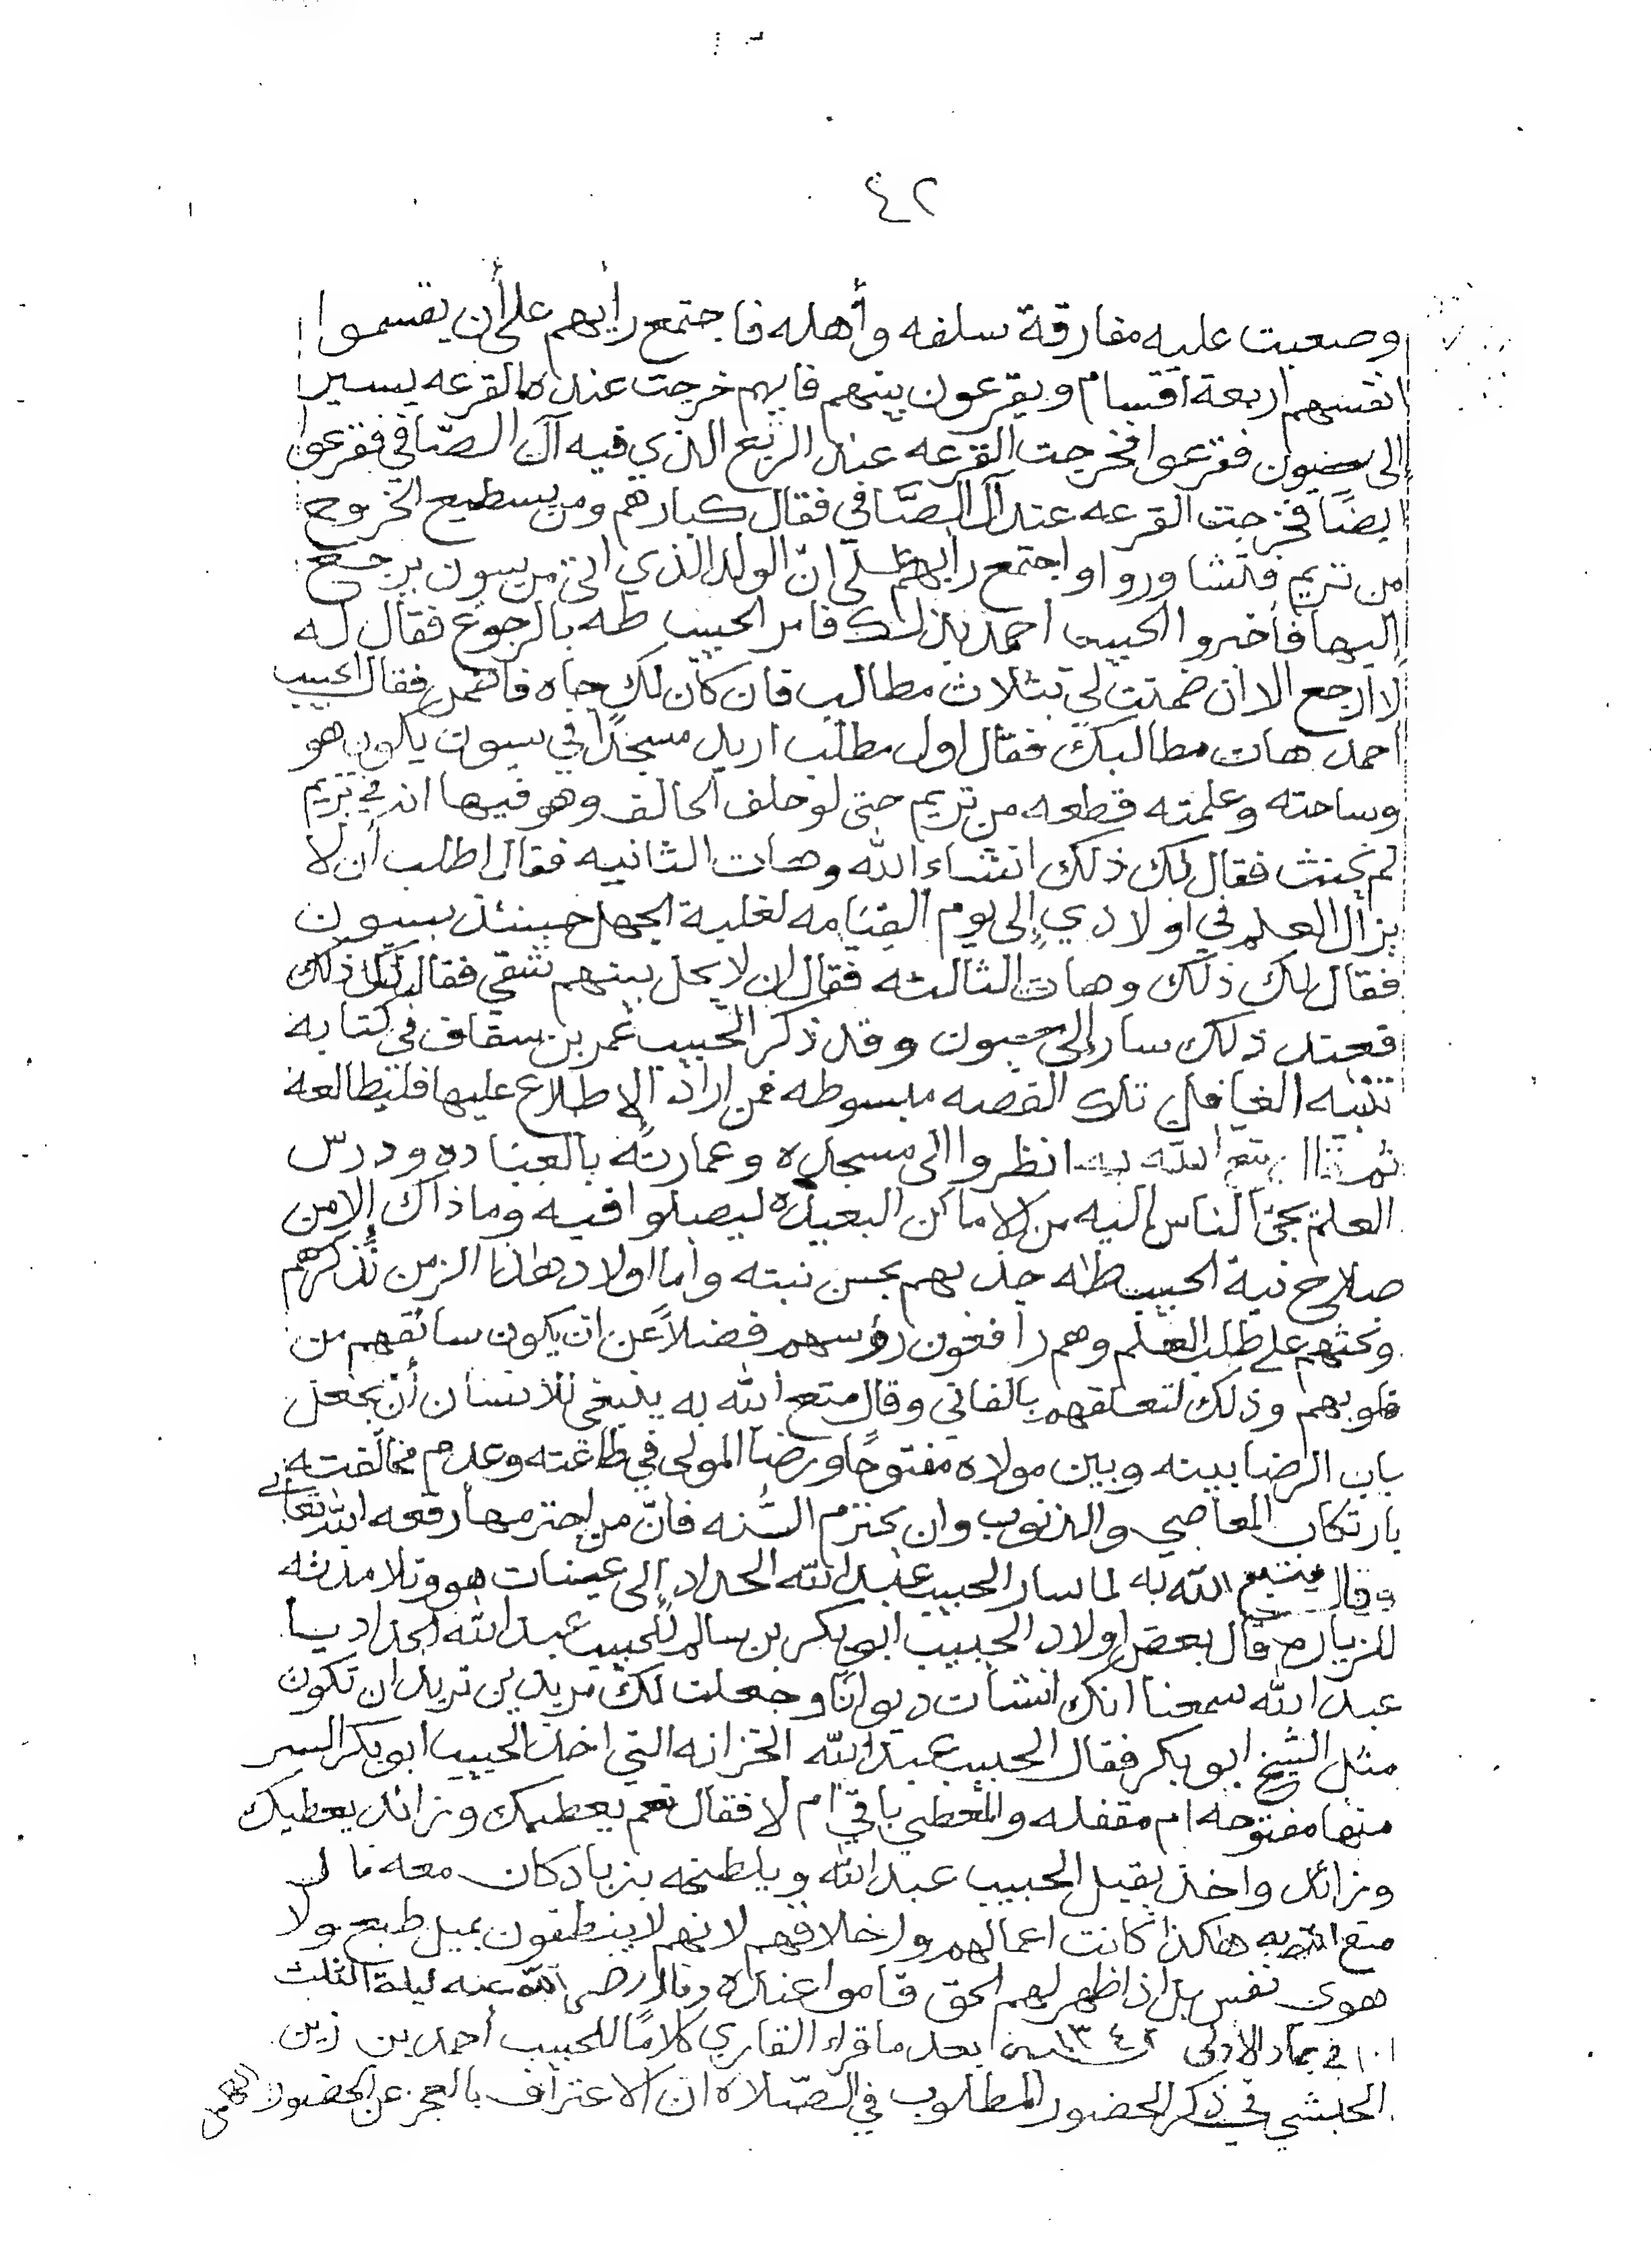 ٤٢
وصعبت عليه مفارقة سلفه وأهله فاجتمع رأيهم على أن يقسموا
انفسهم اربعة اقسام ويقرعون بينهم فايهم خرجت عنده القرعه يسير
إلى سيون فقرعوا فخرجت القرعه عند الربع الذي فيه آل الصّافي فقرعوا
ايضًا فخرجت القرعه عند آل الصَّافي فقال كبارهم ومن يسطيع الخروج
من تريم فتشاوروا واجتمع رأيهم على انّ الولد الذي اتى من سيون يرجع
إليها فأخبروا الحبيب احمد بذلك فامر الحبيب طه بالرجوع فقال له
لا أرجع الا ان ضمنت لي بثلاث مطالب فان كان لك جاه فاضمن فقال الحبيب
احمد هات مطالبك فقال اول مطلب اريد مسجدًا في سيون يكون هو
وساحته وعلمته قطعه من تريم حتى لو حلف الحالف وهو فيها انه في تريم
لم يحنث فقال لك ذلك انشاء الله وهات الثانيه فقال اطلب أن لا
يزال العلم في اولادي إلى يوم القيامه لغلبة الجهل حينئذ بسيون
فقال لك ذلك وهات الثالثه فقال ان لا يحل بينهم شقي فقال لك ذلك
فعند ذلك سار إلى سيون وقد ذكر الحبيب عمر بن سقاف في كتابه
تنبيه الغافل تلك القصه مبسوطه فمن اراد الإطلاع عليها فليطالعه
ثم قال متع الله به انظروا الى مسجده وعمارته بالعباده ودرس
العلم يجئ الناس إليه من الاماكن البعيده ليصلوا فيه وما ذاك إلا من
صلاح نية الحبيب طه جذبهم بحسن نيته واما اولاد هذا الزمن نُذكرهم
ونحثهم على طلب العلم وهم رافعون رؤسهم فضلاً عن ان يكون سائقهم من
قلوبهم وذلك لتعلقهم بالفاني وقال متع الله به ينبغي للانسان أن يجعل
باب الرضا بينه وبين مولاه مفتوحًا ورضا المولى في طاعته وعدم مخالفته
بارتكاب المعاصي والذنوب وان يحترم السُّنه فانّ من احترمها رفعه الله تعالى
وقال متع الله به لما سار الحبيب عبد الله الحداد إلى عينات هو وتلامذته
للزياره قال بعض اولاد الحبيب ابوبكر بن سالم للحبيب عبد الله الحداد يا
عبد الله سمعنا انك انشأت ديوانًا وجعلت لك مريدين تريد ان تكون
مثل الشيخ ابوبكر فقال الحبيب عبد الله الخزانه التي اخذ الحبيب ابوبكر السر
منها مفتوحه ام مقفله والمعطي باقي ام لا فقال نعم يعطيك وزائد يعطيك
وزائد واخذ يقبل الحبيب عبد الله ويلطخه بزباد كان معه قال
متع الله به هكذا كانت اعمالهم واخلاقهم لانهم لا ينطقون بميل طبع ولا
هوى نفس بل اذا ظهر لهم الحق قاموا عنده وقال رضي الله عنه ليلة الثلث
١٠ في جماد الاولى سنة ١٣٤٢ بعد ما قراء القاري كلامًا للحبيب أحمد بن زين
الحبشي في ذكر الحضور المطلوب في الصّلاه ان الاعتراف بالعجز عن الحضور